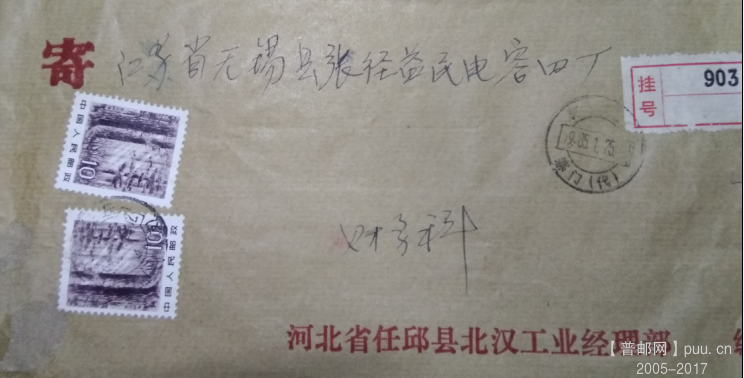 寄 江苏省无锡县张径益民电容四厂
挂号 903
中国人民邮政
10
85.1.25
门(代)
中国人民邮政
10
财务科
河北省任邱县北汉工业经理部
【普邮网】puu.cn
2005-2017